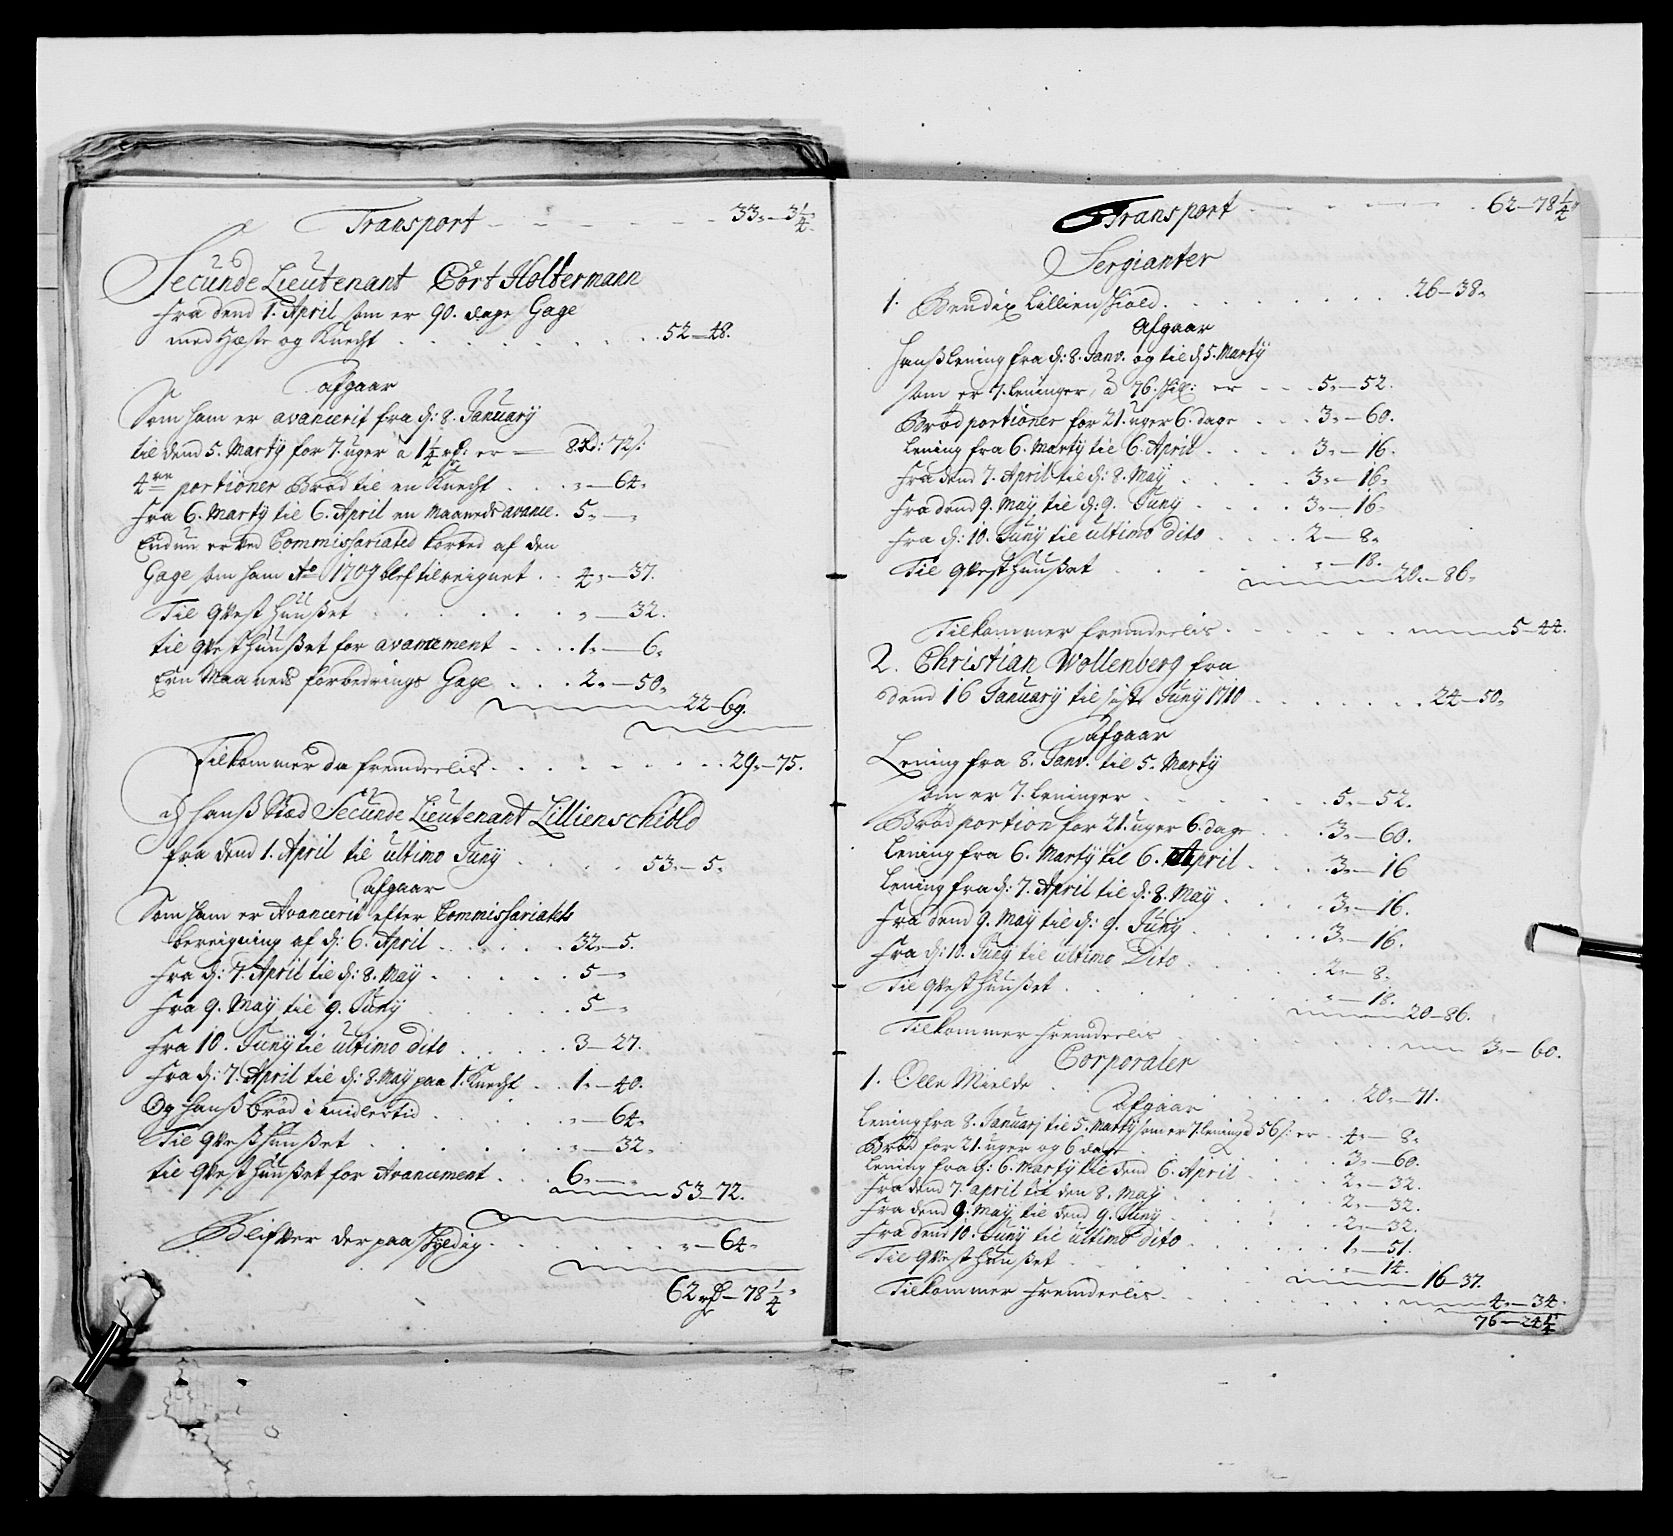 Transport - - - - - 33. - 3 1/4.
Secunde Lieutenant Cort Holtermann
fra dend 1. April som er 90. dags Gage
med Hæste og Knecht . . . . . . . 52 - 48.
afgaar
Som ham er avancerit fra d: 8. January
til dend 5. Marty for 7. uger a 1 1/4 rd: er — 8 Rd: 72 s:
4re portioner Brød til en Knecht . . . " - 64.
Fra 6. Marty til 6. April en Maaneds avance. 5. - "
Endnu er ved Commissariated korted af den
Gage som ham Ao 1709 blef tilreignet . . 4. - 37.
Til Qvesthuuset . . . . . . " - 32.
til Qvesthuuset for avancement . . . . 1. - 6.
Een Maaneds forbedrings Gage . . . 2. - 50.
22 - 69.
Tilkommer da fremdeelis . . . . . . . . 29. - 75.
I hanß Stæd Secunde Lieutenant Lillienschiold
fra dend 1. April til ultimo Juny . . . . 53. - 5.
afgaar
Som ham er Avancerit efter Commissariatets
bereigning af d: 6. April . . . . . 32. - 5.
Fra d: 7. April til d: 8. May . . . . . 5 - "
Fra 9. May til 9. Juny . . . . . . 5 - "
Fra 10. Juny til ultimo dito . . . . . 3 - 27.
Fra d: 7. April til d: 8. May paa 1. Knecht . . 1. - 40.
Og hanß brød i midlertid . . . . . " - 64.
Til Qvesthuuset . . . . . . . " - 32.
til Qvesthuuset for Avancement . . . 6. - "
53 - 72.
Blifver der paa skyldig . . . . . . " - 64.
62 rd - 78 1/4.
Transport - - - - - - 62 - 78 1/4
Sergianter
1. Bendix Lillienschiold . . . . . . . . . 26 - 38.
Afgaar
Hanß lening fra d: 8. Janv. og til d: 5. Marty
som er 7. leninger, a 76. skil: er . . . 5. - 52.
Brød portioner for 21. uger 6. dage . . . 3. - 60.
Lening fra 6. Marty til 6. April . . . . 3. - 16.
Fra dend 7. April til d: 8. May . . . . . 3. - 16.
Fra dend 9. May til d: 9. Juny . . . . . 3. - 16.
Fra d: 10. Juny til ultimo dito . . . . 2 - 8.
Til Qvesthuuset . . . . . . . " - 18.
20. - 86.
Tilkommer fremdeelis . . . . . . 5 - 44.
2. Christian Wollenberg fra
dend 16 January til siste Juny 1710 . . . . . . . 24 - 50.
afgaar
Lening fra 8. Janv. til 5. Marty
som er 7. leninger . . . . . . . 5. - 52.
Brød portion for 21. uger 6. dage . . . 3. - 60.
Lening fra 6. Marty til 6. April . . . . 3. - 16
Lening fra d: 7. April til d: 8. May . . . . 3. - 16.
Fra dend 9. May til d: 9. Juny . . . . . 3. - 16.
Fra d: 10. Juny til ultimo Dito . . . . . 2. - 8.
Til Qvesthuuset . . . . . . . . " - 18.
20 - 86.
Tilkommer fremdeelis . . . . . . . 3. - 60.
Corporaler
1. Olle Mielde . . . . . . . 20. - 71.
Afgaar
Lening fra 8. January til 5. Marty som er 7. lening a 56 s: er . 4. - 8.
Brød for 21. uger og 6 dage . . . . 3. - 60.
Lening fra d: 6. Marty til dend 6. April . . . . 2. - 32.
Fra dend 7. april til den 8. May . . . . . . 2. - 32.
Fra dend 9. May til dend 9. Juny . . . . . . 2. - 32.
Fra dend 10. Juny til ultimo dito . . . . . 1. - 51.
Til Qvesthuuset . . . . . . . . " - 14.
16 - 37.
Tilkommer fremdeelis . . . . . . . 4. - 34.
76 - 24 1/4